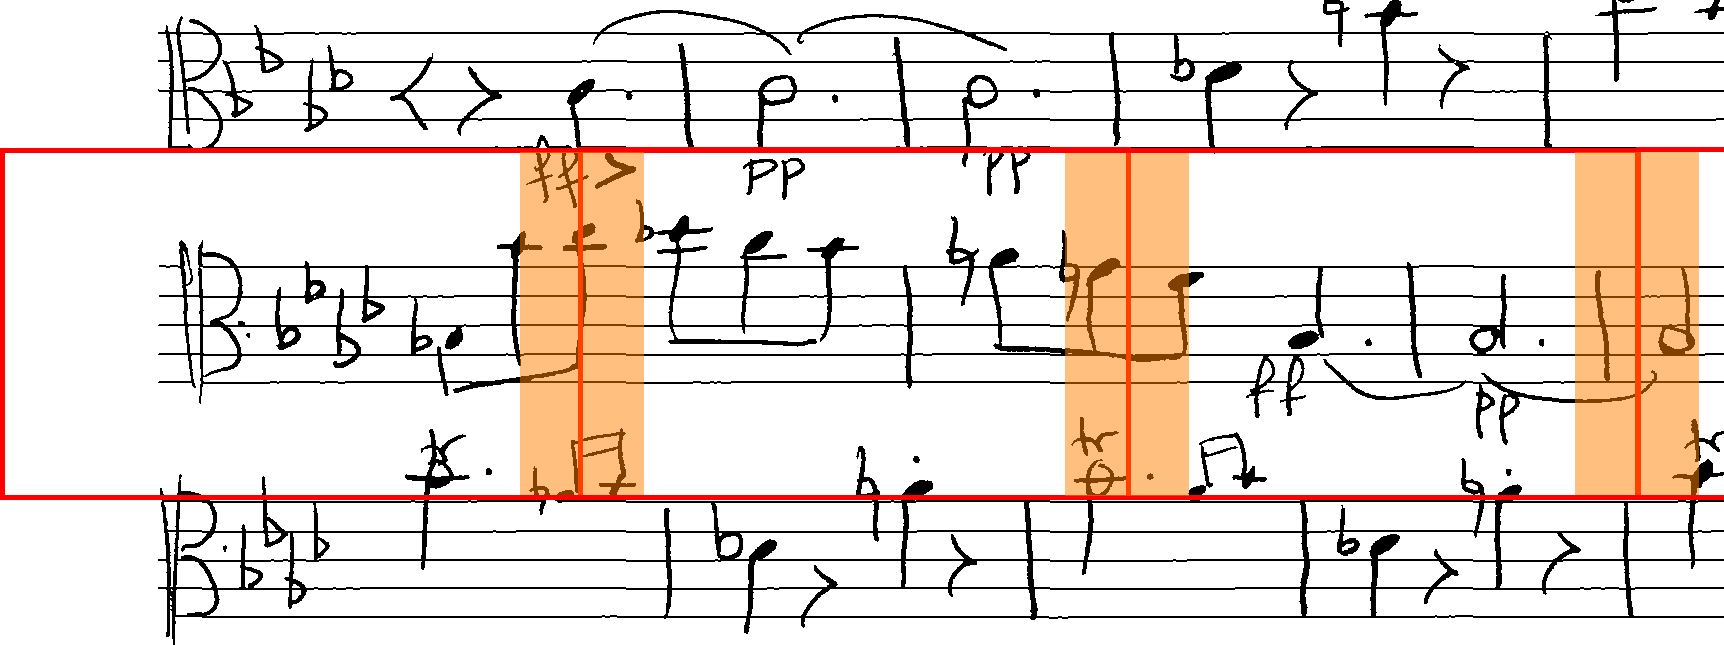 ff pp pp
ff pp
tr tr tr